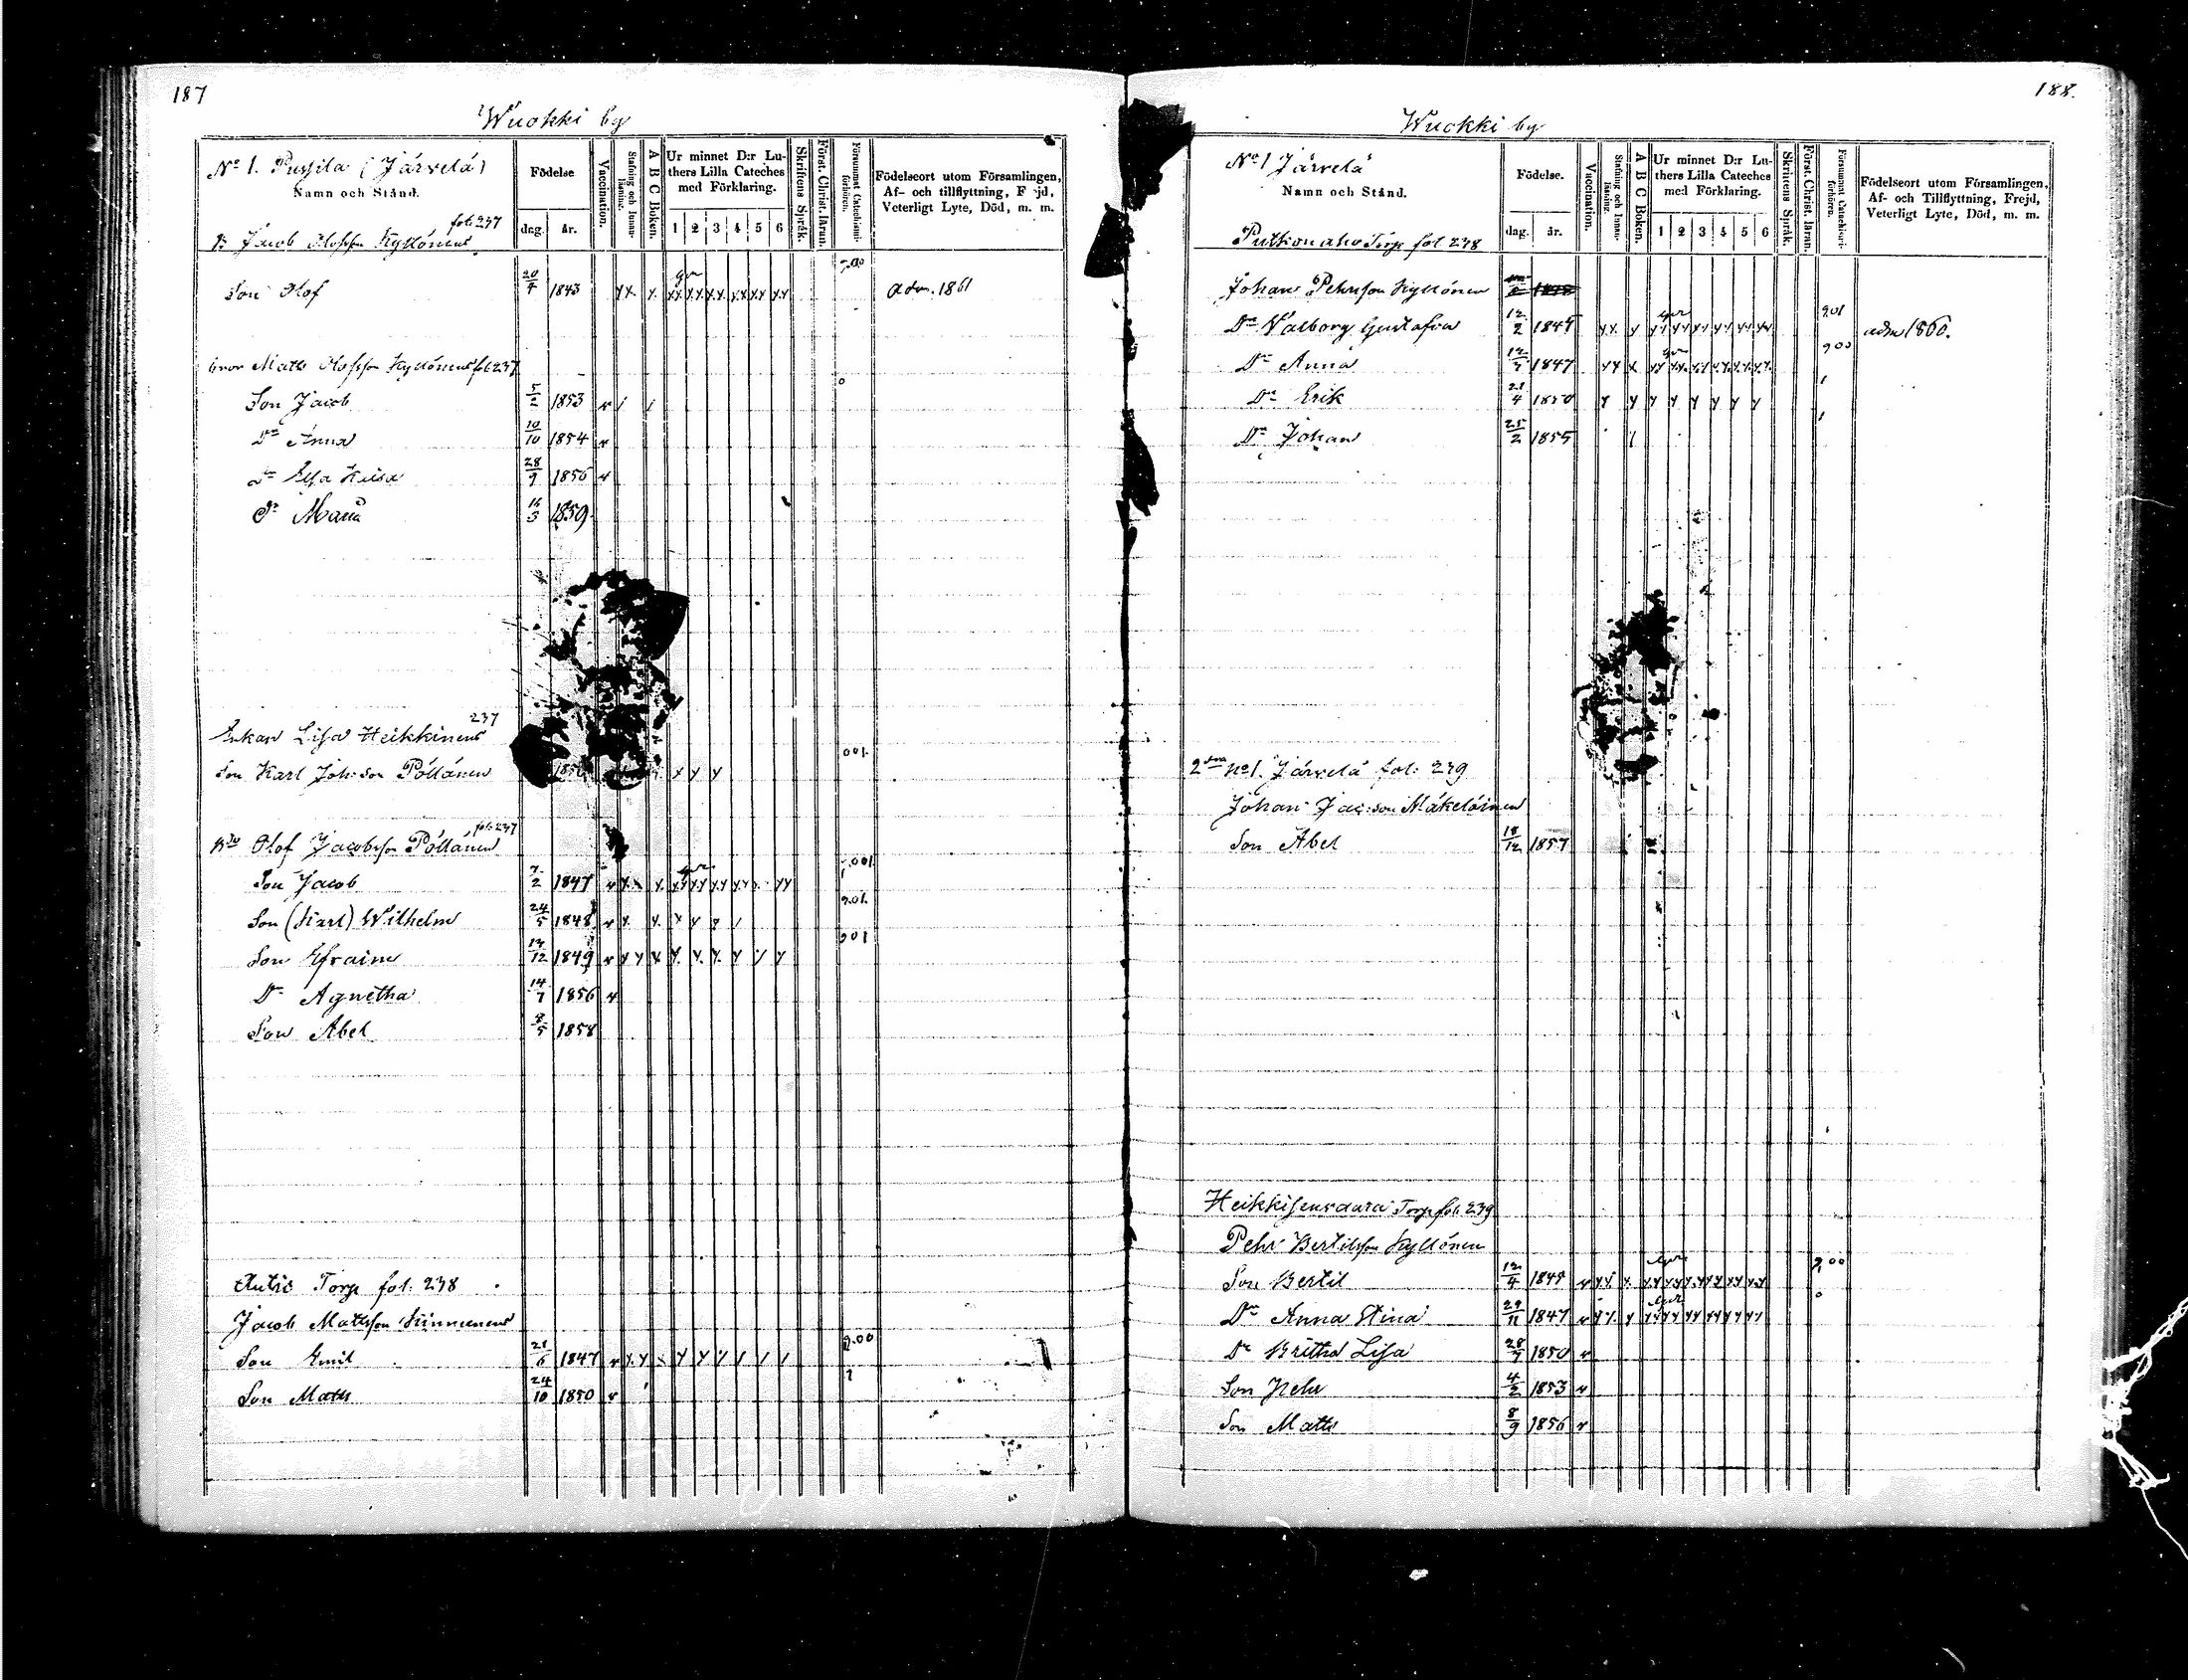 187
Wuokki by
No 1. Pussila (Järvelä)
Namn och Stånd.
Födelse
dag.
år.
Vaccination.
Stafning och Innanläsning.
A B C Boken.
Ur minnet D:r Luthers Lilla Cateches med Förklaring.
1 2 3 4 5 6
Skriftens Språk.
Först. Christ. läran.
Försummat Catechismiförhören.
Födelseort utom Församlingen, Af- och tillflyttning, Frejd, Veterligt Lyte, Död, m. m.
Jacob Olofsson Kyllönen fol: 237
Son Olof 20/4 1843 adm. 1861
bror Matts Olofsson Kyllönen fol 237
Son Jacob 5/2 1853
Dr Anna 10/10 1854
Dr Elsa Kaisa 28/9 1856
Dr Maria 16/3 1859
Enkan Lisa Heikkinen 237
Son Karl Joh:son Pöllänen
Olof Jacobsson Pöllänen fol: 237
Son Jacob 7/2 1847
Son (Karl) Wilhelm 24/5 1848
Son Efraim 14/12 1849
Dr Agnetha 14/7 1856
Son Abel 8/5 1858
Autio Torp fol: 238
Jacob Mattsson Kinnunen
Son Emil 21/6 1847
Son Matts 24/10 1850
188.
Wuokki by
No 1 Järvelä
Namn och Stånd.
Födelse.
dag.
år.
Vaccination.
Stafning och Innanläsning.
A B C Boken.
Ur minnet D:r Luthers Lilla Cateches med Förklaring.
1 2 3 4 5 6
Skriftens Språk.
Först. Christ. läran.
Försummat Catechismiförhören.
Födelseort utom Församlingen, Af- och Tillflyttning, Frejd, Veterligt Lyte, Död, m. m.
Putkonaho Torp fol 238
Johan Pehrsson Kyllönen
Dr Valborg Gustafva 12/2 1845 adm 1860.
Dr Anna 12/7 1847
Dr Erik 21/4 1850
Dr Johan 25/2 1855
2dra No 1. Järvelä fol: 239
Johan Jac:son Mäkeläinen
Son Abel 18/12 1857
Heikkisenvaara Torp fol: 239
Pehr Bertilsson Kyllönen
Son Bertil 12/4 1845
Dr Anna Stina 29/11 1847
Dr Britha Lisa 28/7 1850
Son Pehr 4/2 1853
Son Matts 8/9 1856